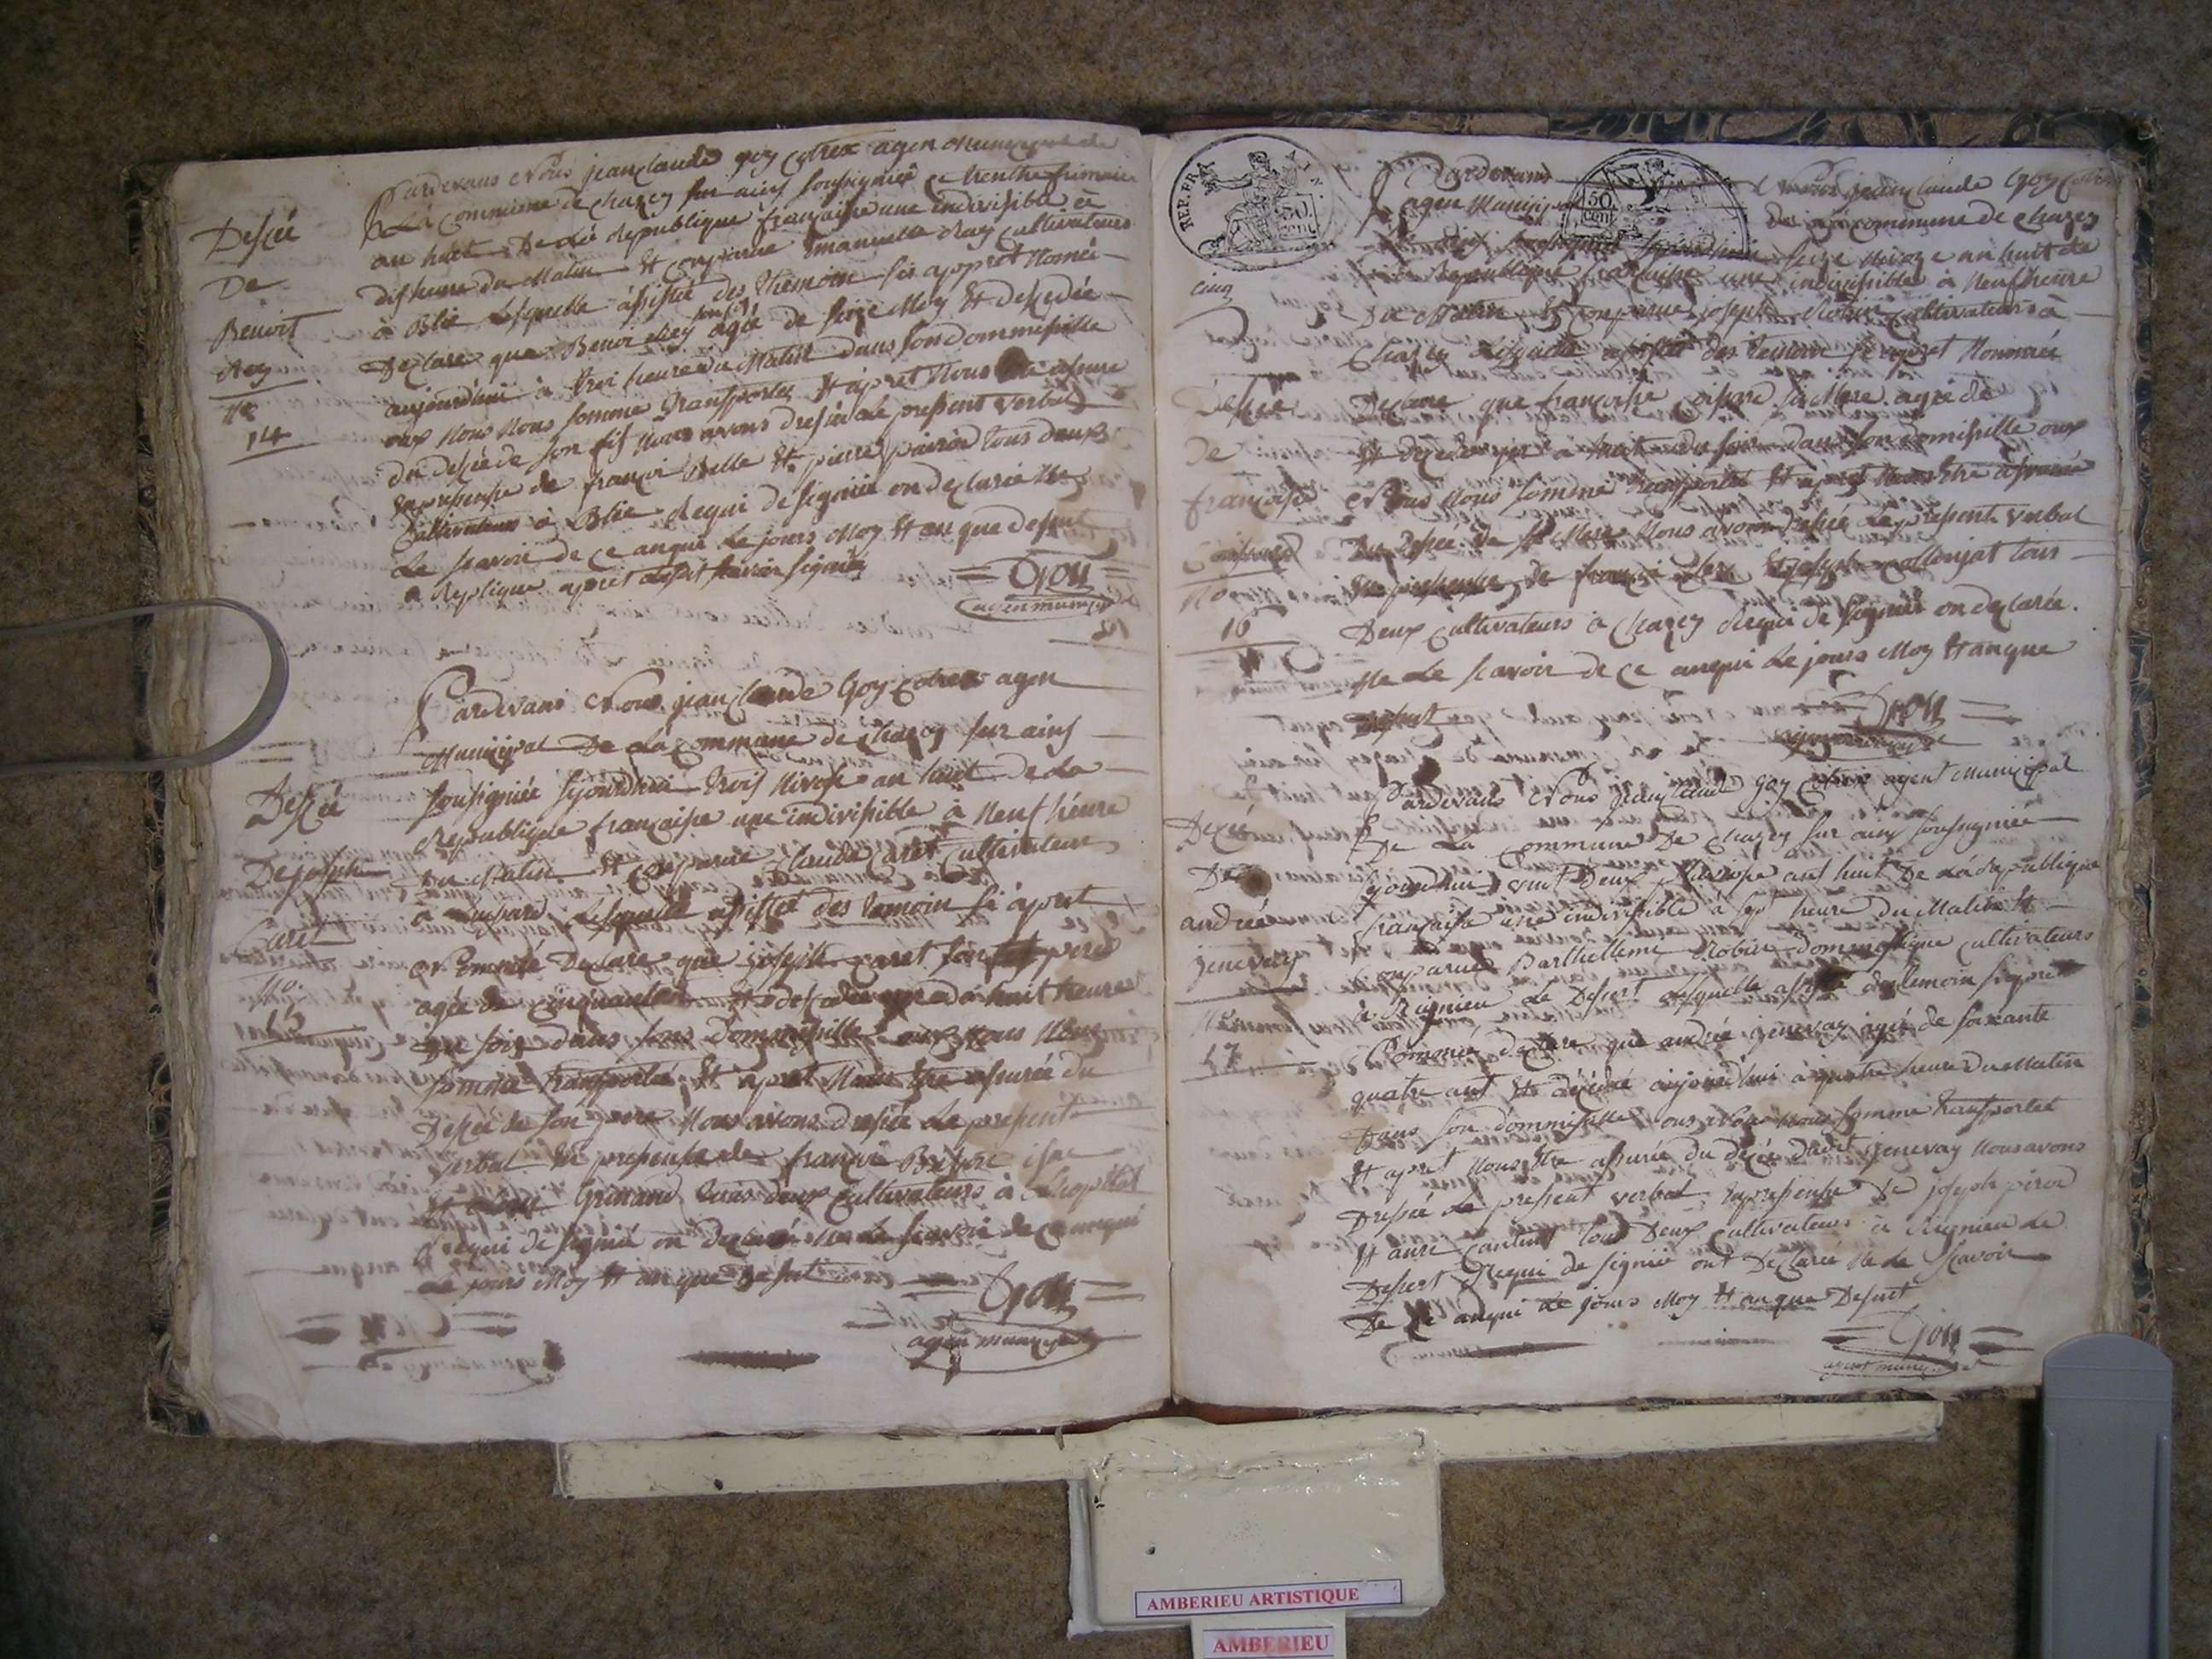 Pardevans Nous jeanclaude goy Cotrex agen Municipal de
La Commune de chazey sur ains sousigniée ce trenthe frimaire
an huit De La Republique française une indivisible à
dis heure du Matin Et comparue Emanuelle Rey cultivateurs
à Blie Lesquelle assistée des themoin sis appret Nomée
Declare que Benoi Rey son fis agée de seize Moy Et decedée
aujourdhui à troi heure du Matin dans son dommesille
oux Nous Nous somme transportée Et apret Nous être assure
du desceé de son fis Nous avons dressée Le present verbal
En presense de françoi Belle Et pierre pairod tous deux
Cultivateurs à Blie Requi de signiée on declarée Ne
Le scavoir de ce anqui Le jours Moy Et an que desut
a Replique apret
= Goy =
agen municipal
Desceé
De
Benoit
Rey
No
14
Pardevans Nous jean Claude Goy Cotrex agen
Municipal De La Commune de chazey sur ains
sousigniée ajourdhui trois Nivose an huit De La
Republique française une indivisible à Neuf héure
Du Matin Et Comparue Claude Caret Cultivateurs
à Luisard Lesquelle assistée des temoin si apret
Nommée Declare que joseph caret son pere
agée de cinquante Et decedée à huit heure
Du soir dans son Dommesille oux Nous Nous
somme transportée Et apret Nous être assurée du
Desceé de son pere Nous avons dressée Le present
verbal En presense de françoi
Et Grinand tous deux Cultivateurs à Lhopital
Requi de signiée on declarée Ne Le scavoir de ce anqui
Le jours Moy Et an que Desut
= Goy =
agen municipal
Desceé
De joseph
Caret
No
15
REP. FRA
AIN
50 cent
50 cent
Pardevans Nous jeanclaude Goy Cotrex
agen Municipal de La commune de chazey
seize Nivoze an huit de
La Republique française une indivisible à Neuf heure
Du Matin Et comparue joseph Robin Cultivateurs à
Chazey Lesquelle assistée des temoin si apret Nommée
Declare que françoise sa Mere agée de
Et decedée à huit du soir dans son domisille oux
Nous Nous somme transportée Et apret Nous être assurée
Du Desceé De sa Mere Nous avons dressée Le present verbal
En presense de françoi Et joseph tous
Deux Cultivateurs à Chazey Requi de signiée on declarée
Ne Le scavoir de ce anqui Le jours Moy Et an que
Desut
= Goy =
cinq
Desceé
De
françoise
No
16
Pardevans Nous jean Claude Goy Cotrex agent Municipal
De La Commune De Chazey sur ains sousigniée
ajourdhui vint Deux pluviose ant huit De La Republique
française une indivisible à sept heure Du Matin Et
Comparue Barthelleme Robin Dommestique cultivateurs
à Rignieu Le Desert Lesquelle assistée de temoin si apret
Nommée declare que andrée jenevay agée de soixante
quatre ant Et décédée aujourdhui à quatre heure Du Matin
Dans son dommisille oux Nous Nous somme transportée
Et apret Nous être assurée du decée dudit jenevay Nous avons
Dressée Le present verbal En presense de joseph pirod
Et tous Deux Cultivateurs à Rignieu Le
Desert Requi de signiée ont Declarée Ne Le scavoir
De Ce anqui Le jours Moy Et an que Desut
= Goy =
agent municipal
Decée
De
andrée
jenevay
No
17
AMBERIEU ARTISTIQUE
AMBERIEU